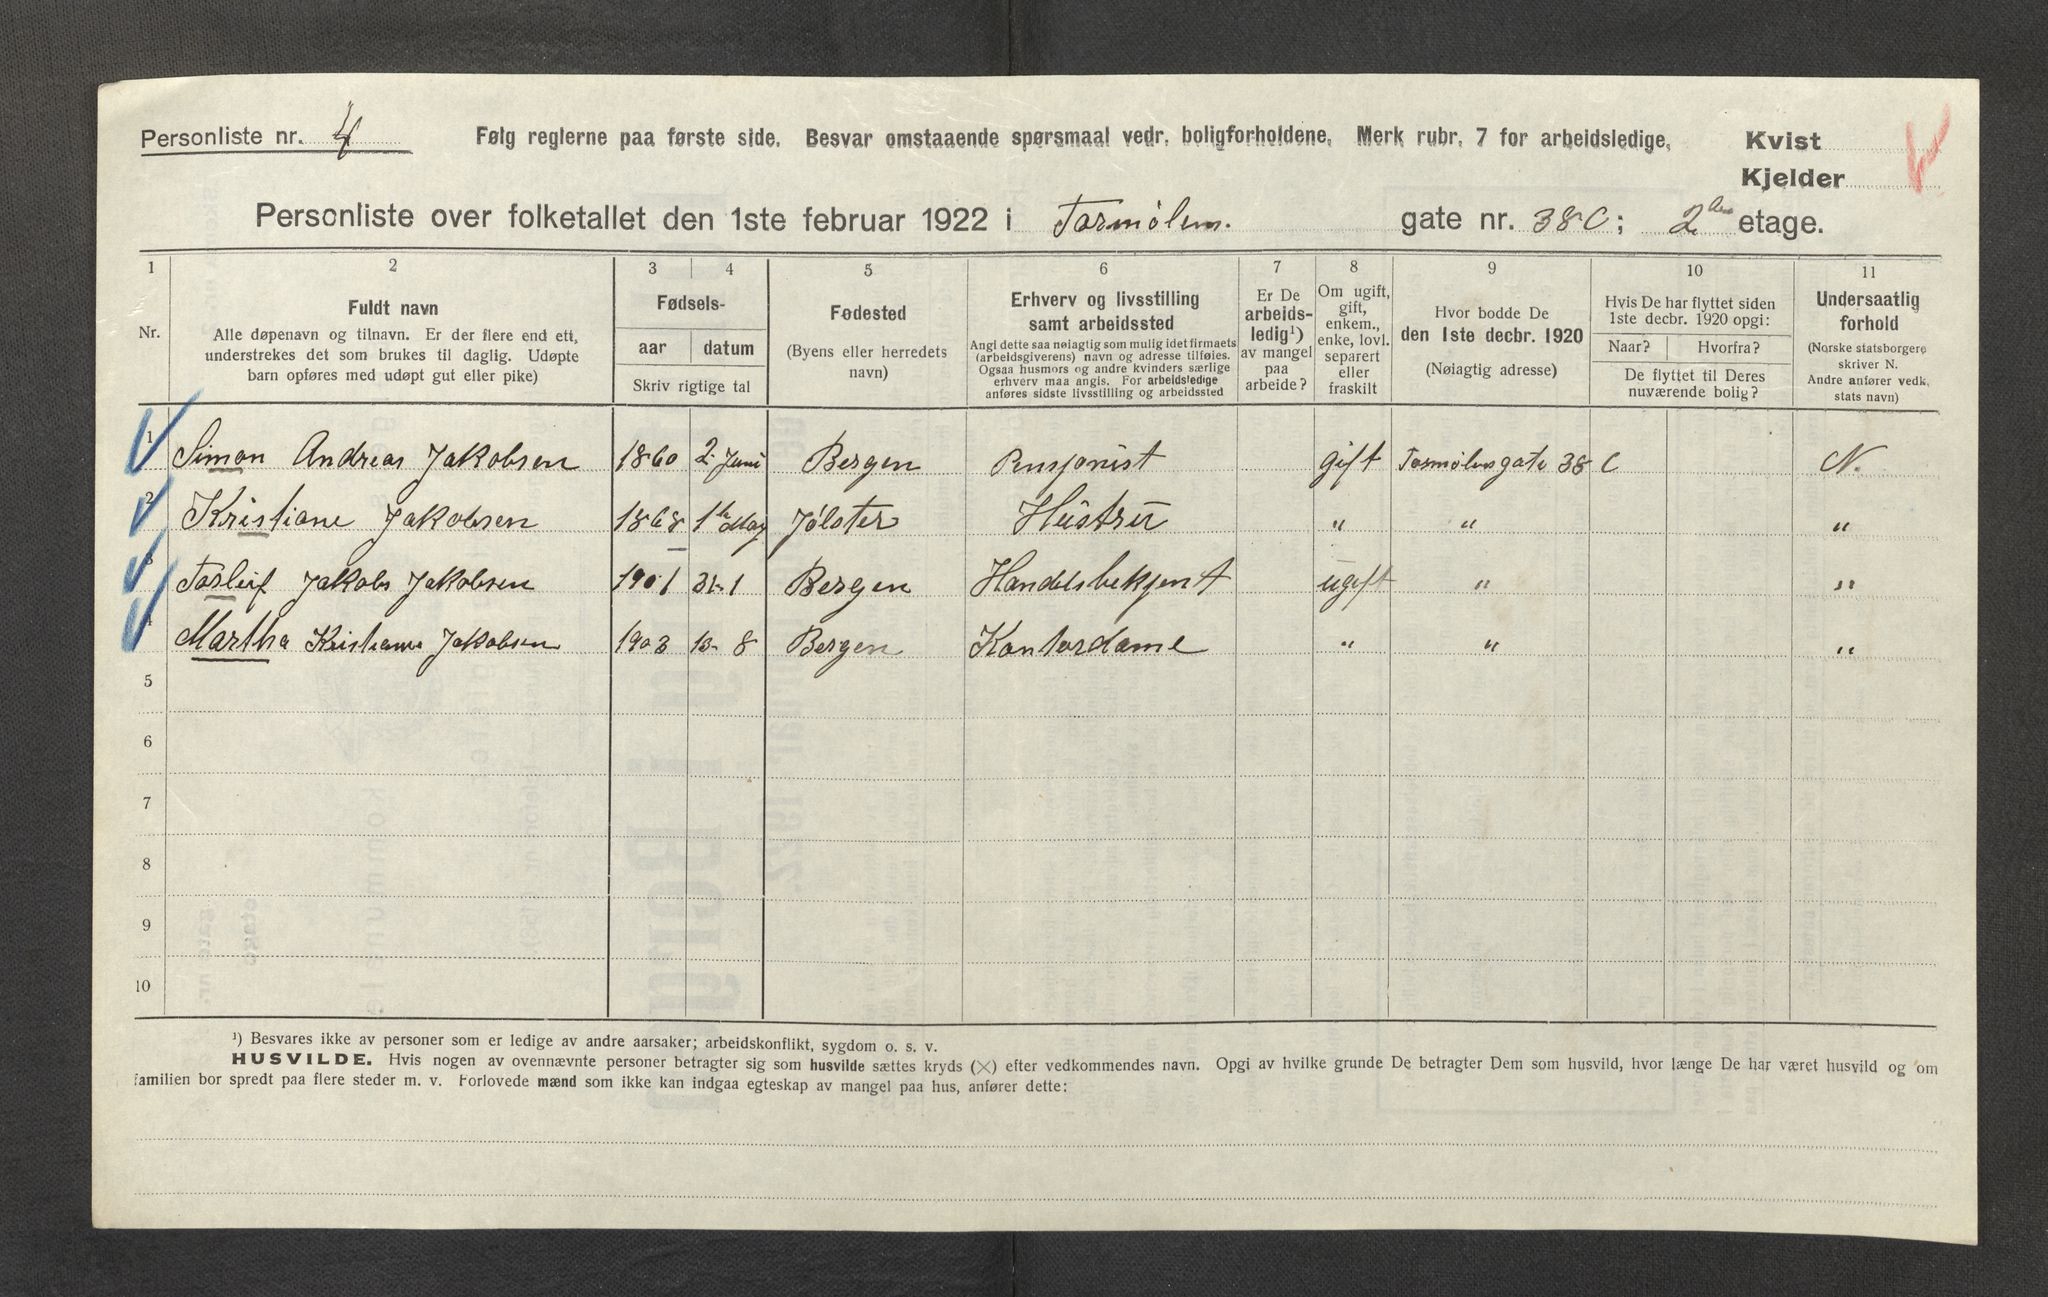 Personliste nr. 4 Følg reglerne paa første side. Besvar omstaaende spørsmaal vedr. boligforholdene. Merk rubr. 7 for arbeidsledige. Kvist
Kjelder
Personliste over folketallet den 1ste februar 1922 i Tormølens. gate nr. 38 C; 2den etage.
1 2 3 4 5 6 7 8 9 10 11
Nr.
Fuldt navn
Alle døpenavn og tilnavn. Er der flere end ett,
understrekes det som brukes til daglig. Udøpte
barn opføres med udøpt gut eller pike)
Fødsels-
aar datum
Skriv rigtige tal
Fødested
(Byens eller herredets
navn)
Erhverv og livsstilling
samt arbeidssted
Angi dette saa nøiagtig som mulig idet firmaets
(arbeidsgiverens) navn og adresse tilføies.
Ogsaa husmors og andre kvinders særlige
erhverv maa angis. For arbeidsledige
anføres sidste livsstilling og arbeidssted
Er De
arbeids-
ledig¹)
av mangel
paa
arbeide?
Om ugift,
gift,
enkem.,
enke, lovl.
separert
eller
fraskilt
Hvor bodde De
den 1ste decbr. 1920
(Nøiagtig adresse)
Hvis De har flyttet siden
1ste decbr. 1920 opgi:
Naar? Hvorfra?
De flyttet til Deres
nuværende bolig?
Undersaatlig
forhold
(Norske statsborgere
skriver N.
Andre anfører vedk.
stats navn)
1 Simon Andreas Jakobsen 1860 2. Juni Bergen Pensjonist gift Tormølensgate 38 C N.
2 Kristiane Jakobsen 1868 1ste May Jølster Hustru " " "
3 Torleif Jakobs Jakobsen 1901 31-1 Bergen Handelsbetjent ugift " "
4 Martha Kristiane Jakobsen 1903 13-8 Bergen Kontordame " " "
5
6
7
8
9
10
¹) Besvares ikke av personer som er ledige av andre aarsaker; arbeidskonflikt, sygdom o. s. v.
HUSVILDE. Hvis nogen av ovennævnte personer betragter sig som husvilde sættes kryds (×) efter vedkommendes navn. Opgi av hvilke grunde De betragter Dem som husvild, hvor længe De har været husvild og om
familien bor spredt paa flere steder m. v. Forlovede mænd som ikke kan indgaa egteskap av mangel paa hus, anfører dette: